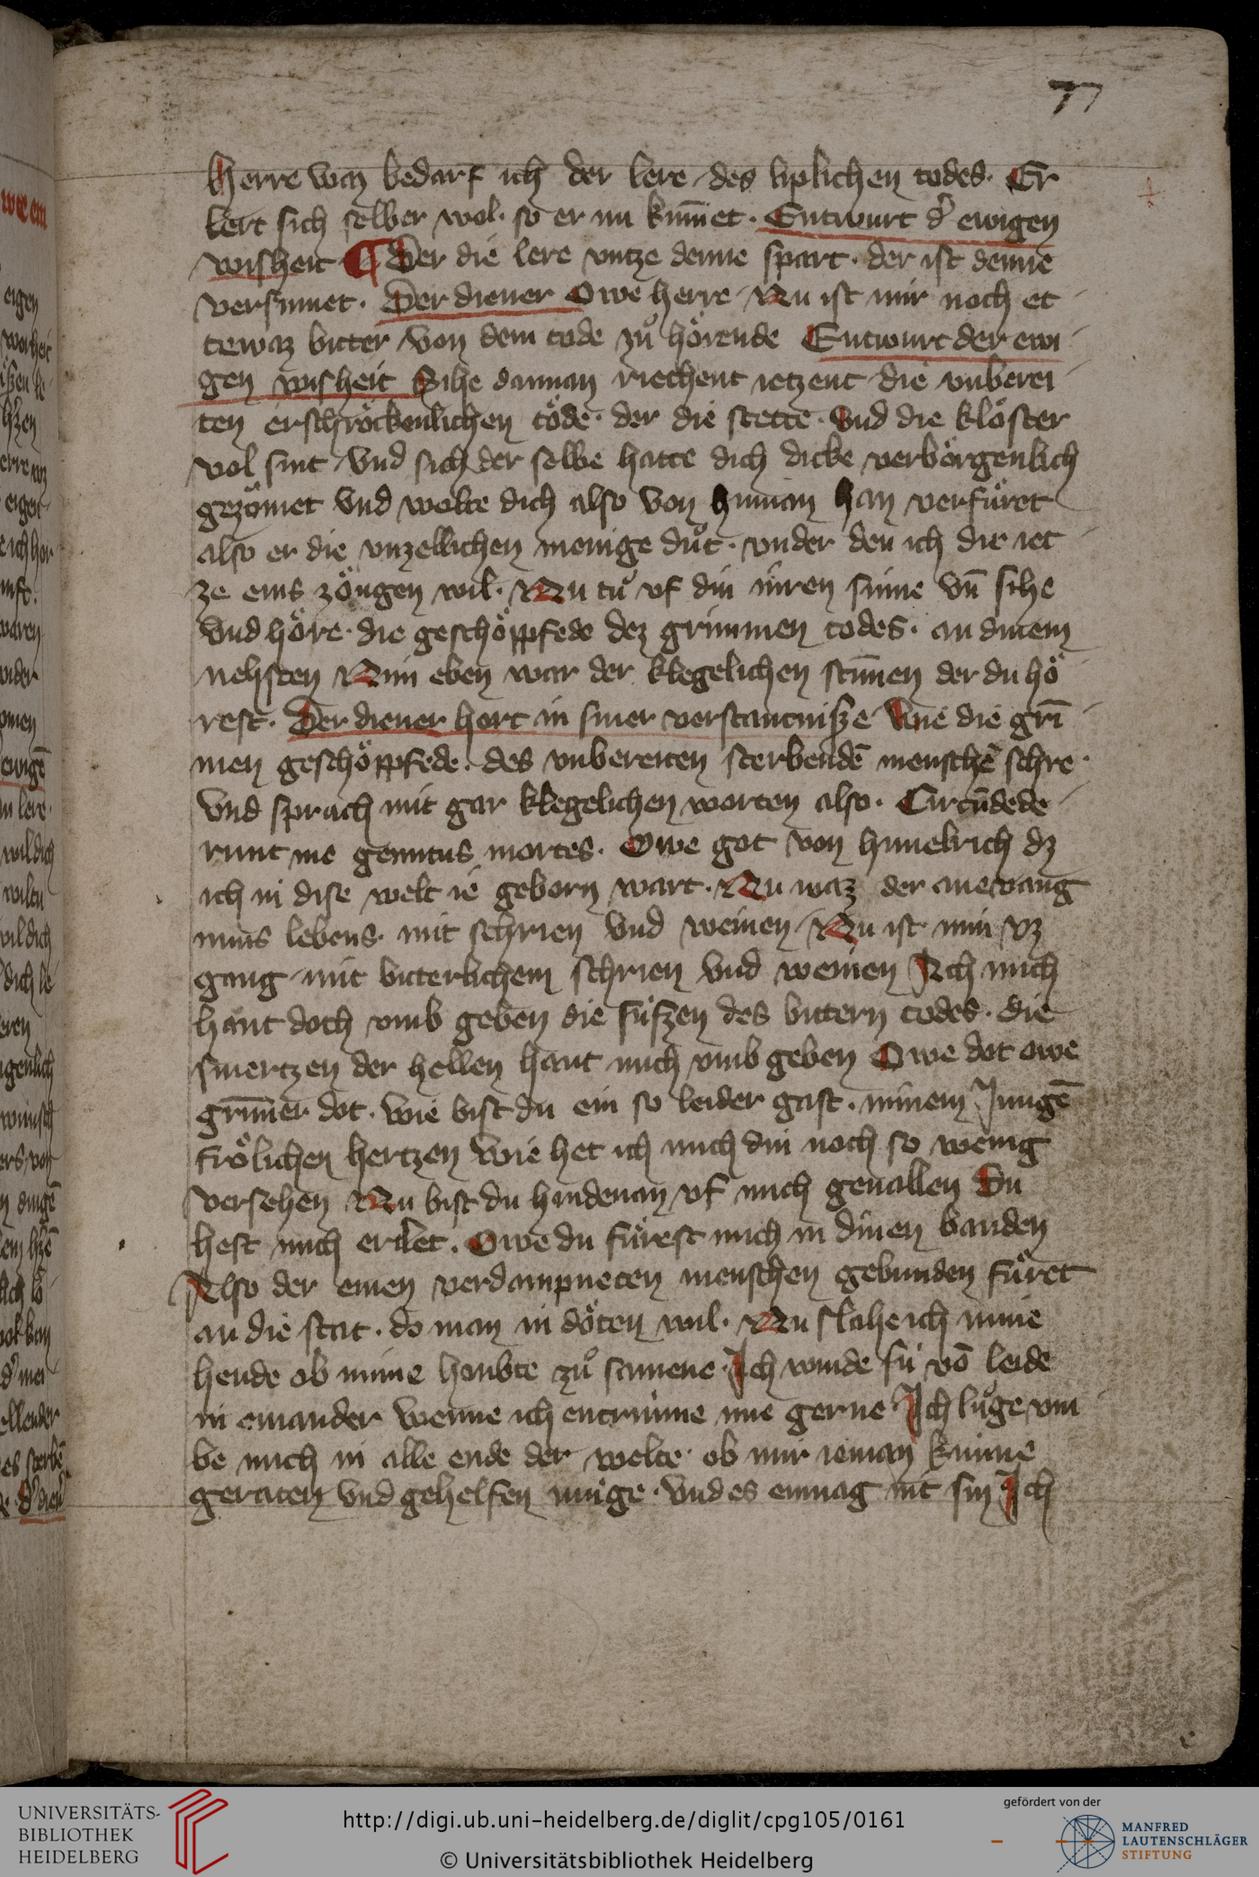 77
herre waz bedarf ich der lere des liplichen todes. Er
lert sich selber wol. so er nu kūmet. Entwurt d' ewigen
wisheit ¶ Der die lere vntze denne spart. der ist denne
versumet. Der diener Owe herre Nu ist mir noch et
tewaz bitter von dem tode zů hörende Entwurt der ewi
gen wisheit Sihe dannan riechent ietzent die vnberei
ten erschröckenlichen töde. der die stette. Vnd die klöster
vol sint Vnd sich der selbe hatte dich dicke verborgenlich
gezömet Vnd wolte dich also von hinnan han verfüret
also er die vnzellichen menige důt. vnder den ich dir iet
ze eins zöugen wil. Nu tů vf din inren sinne vn̄ sihe
Vnd höre. die geschöppfede dez grimmen todes. an dinem
nehsten Nim eben war der klegelichen stim̄en der du hö
rest. Der diener hort in siner verstantnisze Wie die grī
men geschöppfede. des vnbereiten sterbendē menschē schre.
Vnd sprach mit gar klegelichen worten also. Circūdede
runt me gemitus mortes. Owe got von himelrich dz
ich in dise welt ie geborn wart. Nu waz der anevang
mins lebens. mit schrien Vnd weinen Nu ist min vz
gang mit bitterlichem schrien vnd weinen Ach mich
hant doch vmb geben die süfzen des bittern todes. die
smertzen der hellen hant mich vmb geben Owe dot owe
grim̄er dot. wie bist du ein so leider gast. minem Jungē
frölichen hertzen wie het ich mich din noch so wenig
versehen Nu bist du hindenan vf mich geuallen Du
hest mich erilet. Owe du fürest mich in dinen banden
Also der einen verdampneten menschen gebunden füret
an die stat. do man in döten wil. Nu slahe ich mine
hende ob mime houbte zů samene Ich winde sü vō leide
in einander wenne ich entrünne ime gerne Ich lůge vm
be mich in alle ende der welte. ob mir ieman kunne
geraten Vnd gehelfen muge. Vnd es enmag nit sin Ich
UNIVERSITÄTS-
BIBLIOTHEK
HEIDELBERG
http://digi.ub.uni-heidelberg.de/diglit/cpg105/0161
© Universitätsbibliothek Heidelberg
gefördert von der
MANFRED
LAUTENSCHLÄGER
STIFTUNG